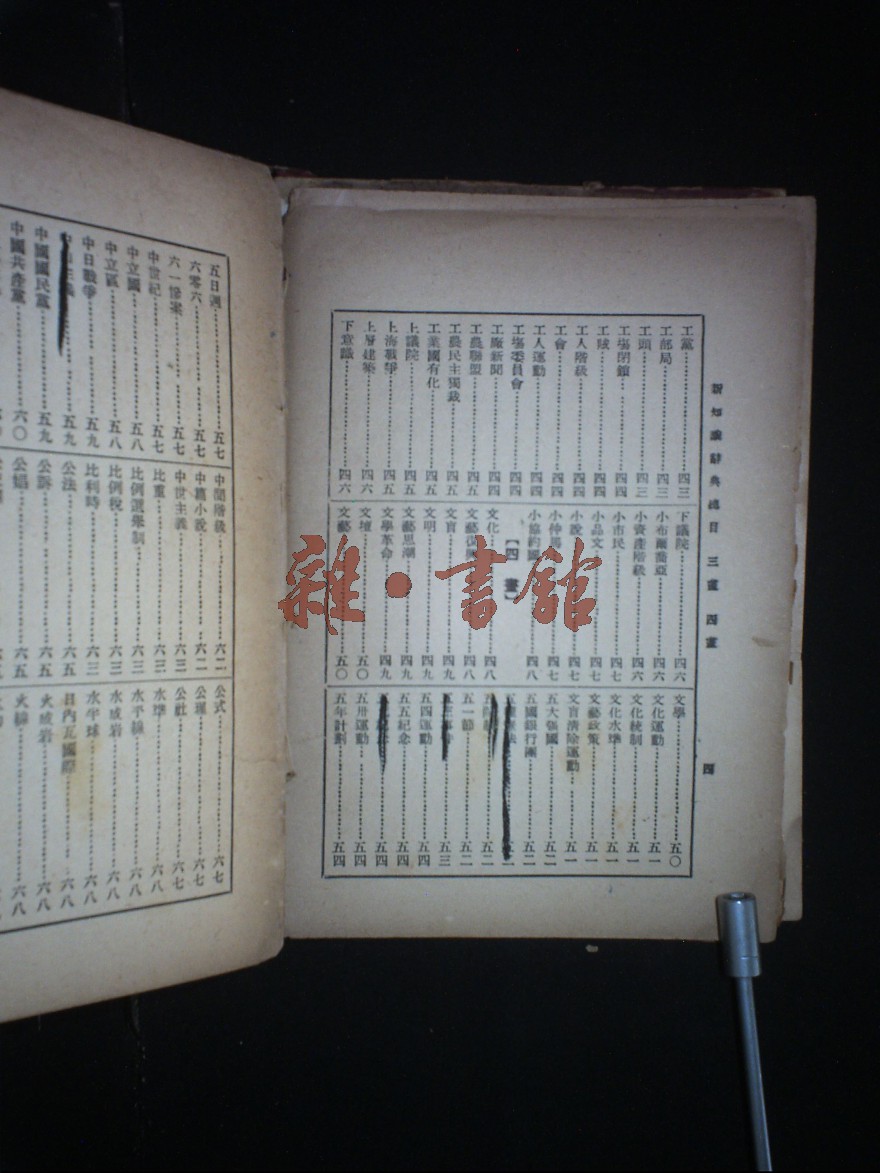 新知識辭典總目 三畫 四畫
四
工黨 四三
工部局 四三
工頭 四三
工場閉鎖 四四
工賊 四四
工人階級 四四
工會 四四
工人運動 四四
工場委員會 四四
工廠新聞 四四
工農聯盟 四五
工農民主獨裁 四五
工業國有化 四五
上議院 四五
上海戰爭 四五
上層建築 四六
下意識 四六
下議院 四六
小布爾喬亞 四六
小資產階級 四六
小市民 四七
小品文 四七
小說 四七
小協約國 四八
【四畫】
文化 四八
文盲 四九
文明 四九
文藝思潮 四九
文學革命 四九
文壇 五〇
文藝 五〇
文學 五〇
文化運動 五一
文化統制 五一
文化水準 五一
文藝政策 五一
文盲清除運動 五一
五大強國 五二
五國銀行團 五二
五一節 五二
五四運動 五四
五五紀念 五四
五卅運動 五四
五年計劃 五四
五日週 五七
六零六 五七
六一慘案 五七
中世紀 五七
中立國 五八
中立區 五八
中日戰爭 五九
中國國民黨 五九
中國共產黨 六〇
中間階級 六二
中篇小說 六二
中世主義 六三
比重 六三
比例選舉制 六三
比例稅 六三
比利時 六三
公法 六五
公訴 六五
公娼 六五
公式 六七
公理 六七
公社 六七
水準 六八
水平線 六八
水成岩 六八
水平球 六八
日內瓦國際 六八
火成岩 六八
火線 六八
雜·書館